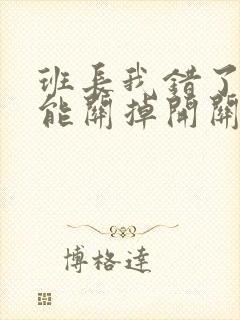 班長我錯了
能關掉開關
博格達